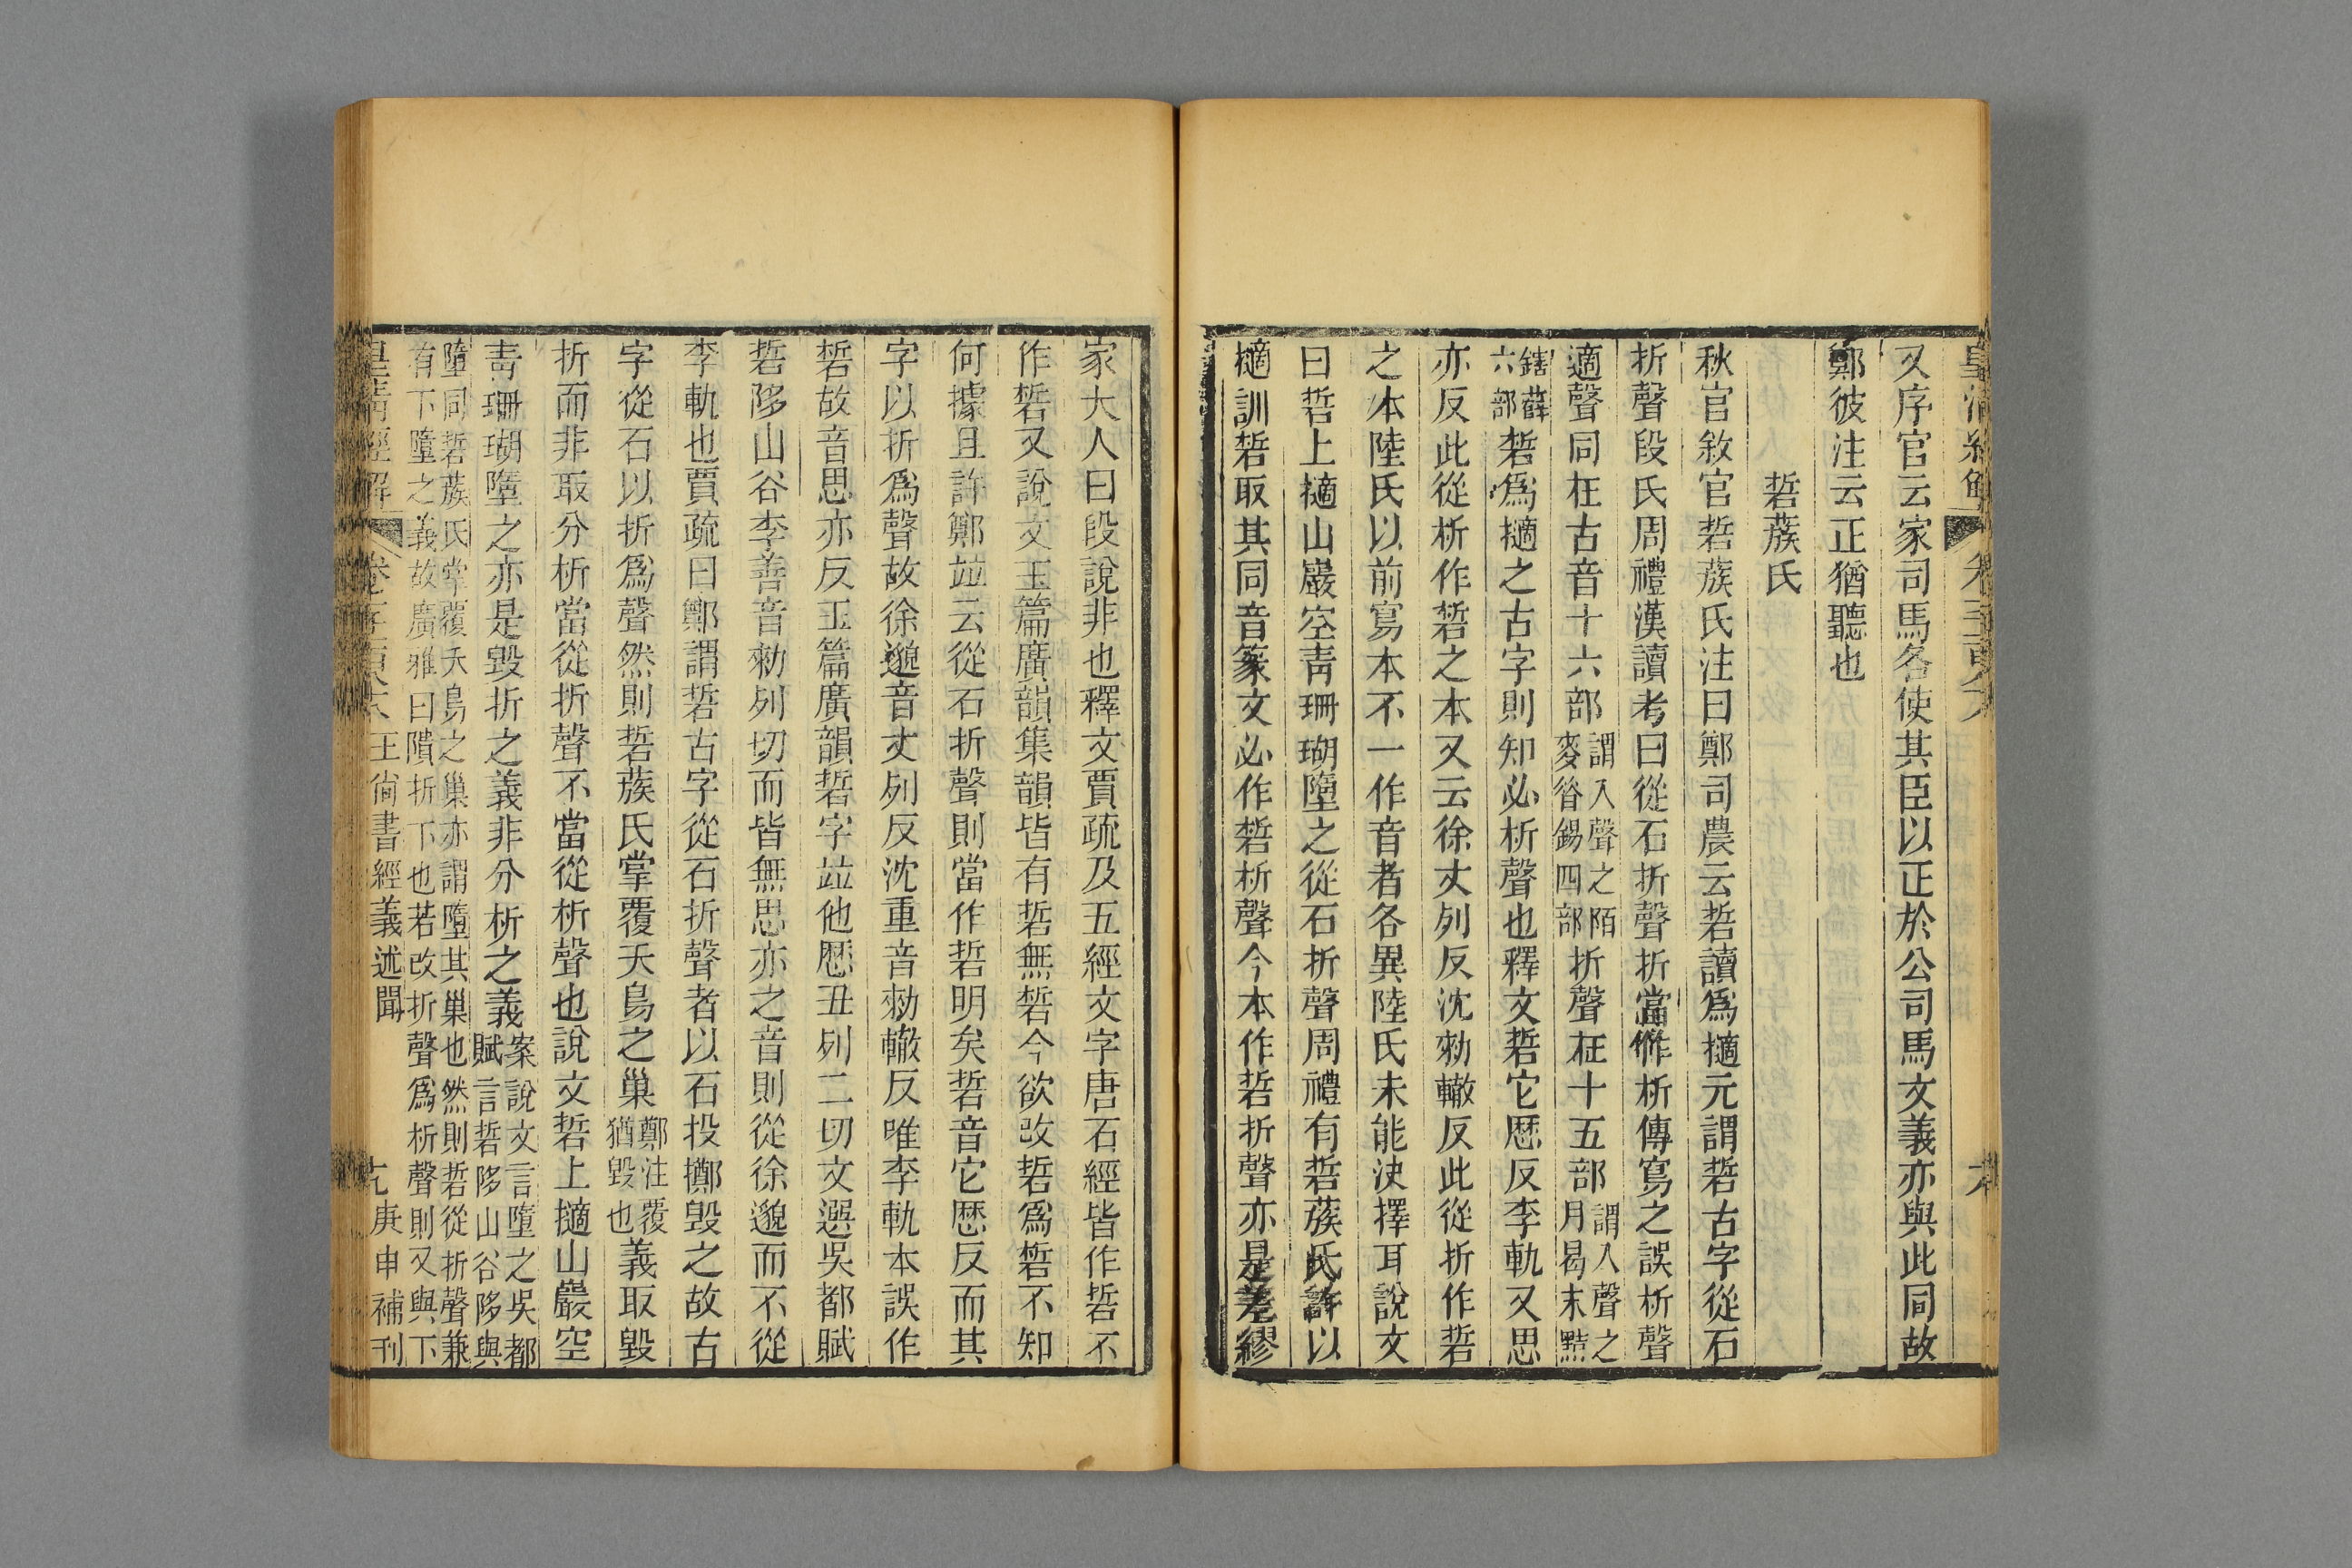 皇清經解
又序官云家司馬各使其臣以正於公司馬文義亦與此同故
鄭彼注云正猶聽也
硩蔟氏
秋官敘官硩蔟氏注曰鄭司農云硩讀爲擿元謂硩古字從石
折聲段氏周禮漢讀考曰從石折聲折當作析傳寫之誤析聲
適聲同在古音十六部謂入聲之陌麥昔錫四部折聲在十五部謂入聲之月曷末黠
鎋薛六部爲擿之古字則知必析聲也釋文硩它歷反李軌又思
亦反此從析作之本又云徐丈列反沈勑轍反此從折作硩
之本陸氏以前寫本不一作音者各異陸氏未能決擇耳說文
曰硩上擿山巖空青珊瑚墮之從石折聲周禮有硩蔟氏許以
擿訓取其同音篆文必作析聲今本作硩折聲亦是差繆
家大人曰段說非也釋文賈疏及五經文字唐石經皆作硩不
作又說文玉篇廣韻集韻皆有硩無今欲改硩爲不知
何據且許鄭竝云從石折聲則當作硩明矣硩音它歷反而其
字以折爲聲故徐邈音丈列反沈重音勑轍反唯李軌本誤作
故音思亦反玉篇廣韻硩字竝他歷丑列二切文選吳都賦
硩陊山谷李善音勑列切而皆無思亦之音則從徐邈而不從
李軌也賈疏曰鄭謂硩古字從石折聲者以石投擲毀之故古
字從石以折爲聲然則硩蔟氏掌覆夭鳥之巢鄭注覆猶毀也義取毀
折而非取分析當從折聲不當從析聲也說文硩上擿山巖空
青珊瑚墮之亦是毀折之義非分析之義案說文言墮之吳都賦言硩陊山谷陊與
墮同硩蔟氏掌覆夭鳥之巢亦謂墮其巢也然則硩從折聲兼
有下墮之義故廣雅曰隤折下也若改折聲爲析聲則又與下
皇清經解 王尚書經義述聞 庚申補刊